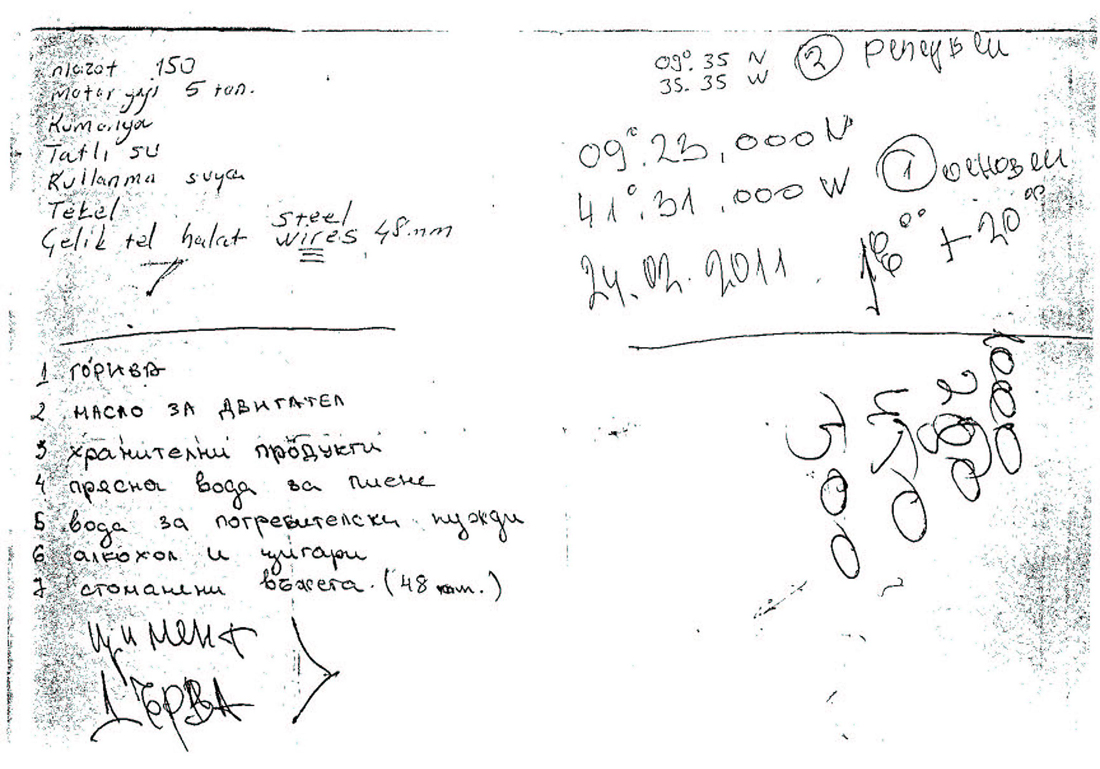 mazot 150
motor yağı 5 ton.
Kumanya
Tatlı su
Kullanma suyu
Tekel
Çelik tel halat steel wires 48.mm
7
1 ГОРИВА
2 МАСЛО ЗА ДВИГАТЕЛ
3 хранителни продукти
4 прясна вода за пиене
5 вода за потребителски нужди
6 алкохол и цигари
7 стоманени въжета. (48 mm.)
цимент
ДЪРВА
09°. 35 N
35. 35 W
2 резервен
09°.23,000 N
41°.31,000 W
1 основен
24.02.2011. 18°° + 20°°
1000